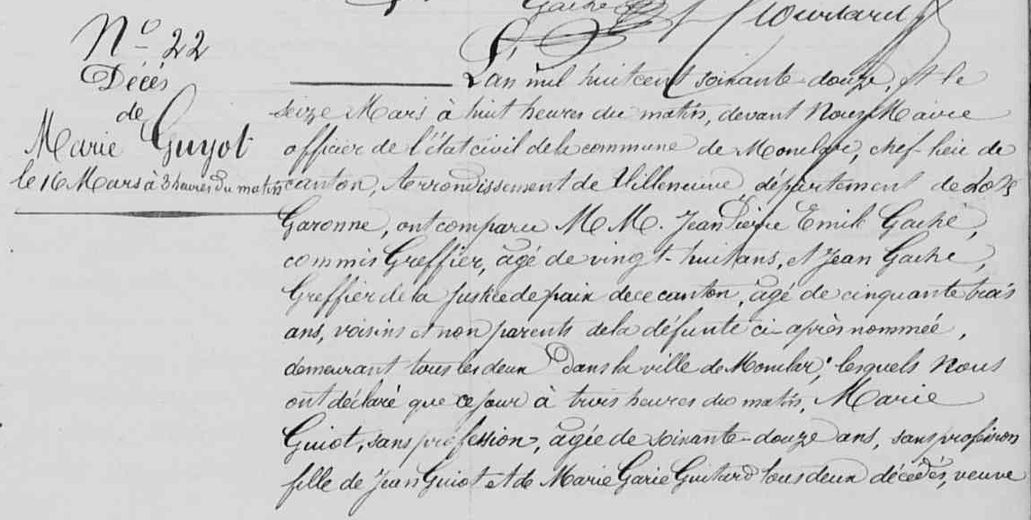 Gache
N.o 22
Décès
de
Marie Guyot
le 16 Mars à 3 heures du matin
L'an mil huit cent soixante douze, et le
seize Mars à huit heures du matin, devant Nous Maire
officier de l'état civil de la commune de Monclar, chef-lieu de
canton, Arrondissement de Villeneuve, département de Lot &
Garonne, ont comparu M.M. Jean Pierre Emile Gache,
commis Greffier, âgé de vingt-huit ans, et Jean Gache,
Greffier de la justice de paix de ce canton, âgé de cinquante trois
ans, voisins et non parents de la défunte ci-après nommée,
demeurant tous les deux dans la ville de Monclar; lesquels Nous
ont déclaré que ce jour à trois heures du matin, Marie
Guiot, sans profession, âgée de soixante-douze ans, sans profession
fille de Jean Guiot et de Marie Garie Guitard tous deux décédés, veuve